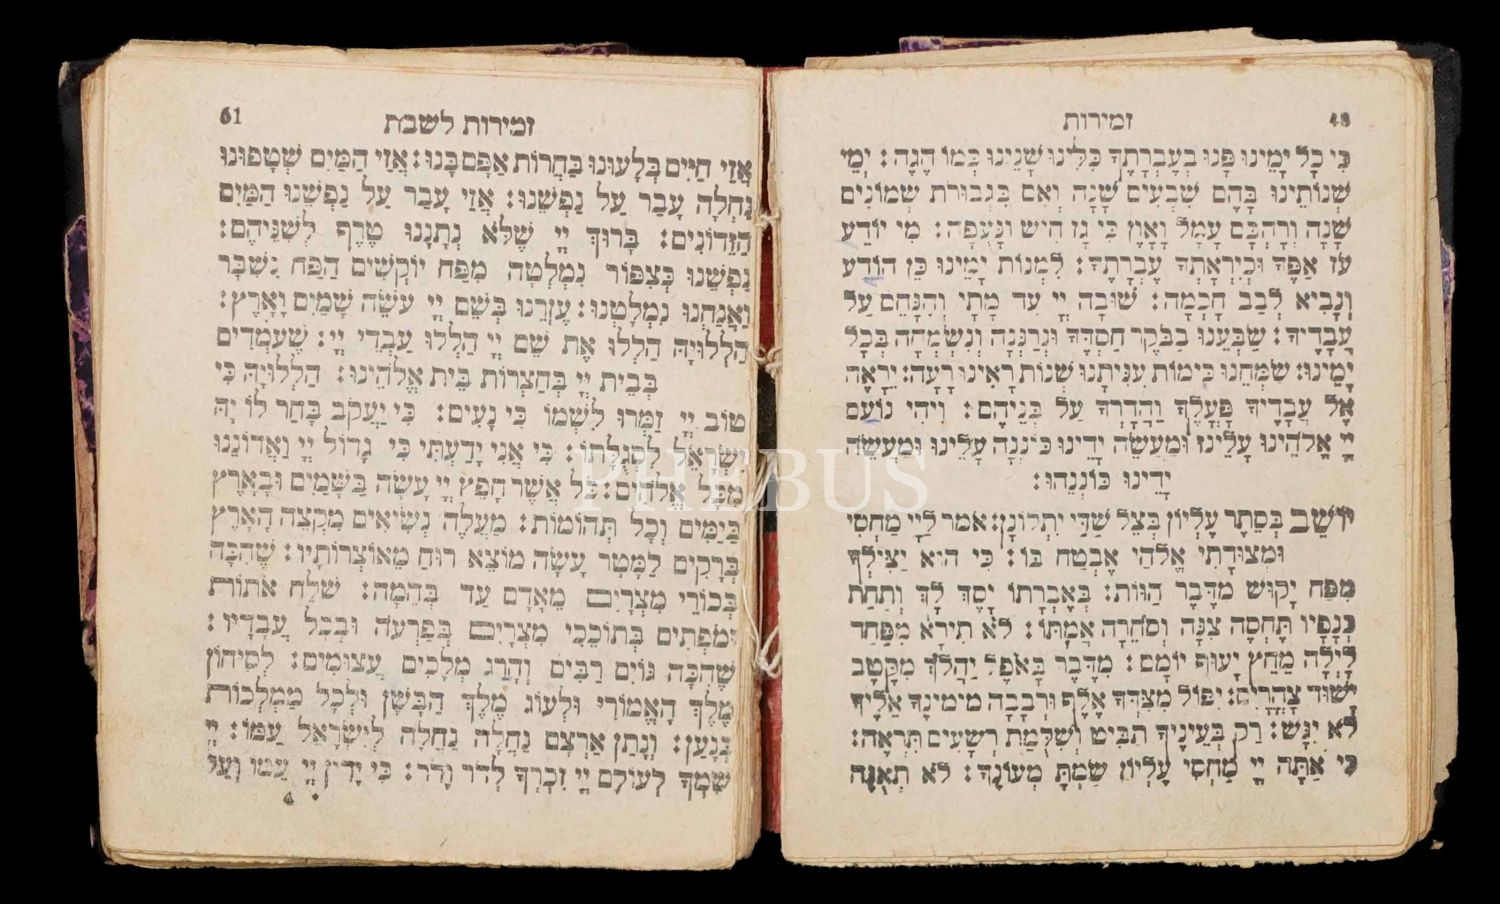 48
זמירות
כִּי כָל יָמֵינוּ פָּנוּ בְעֶבְרָתֶךָ כִּלִּינוּ שָׁנֵינוּ כְּמוֹ הֶגֶה: יְמֵי
שְׁנוֹתֵינוּ בָּהֶם שִׁבְעִים שָׁנָה וְאִם בִּגְבוּרֹת שְׁמוֹנִים
שָׁנָה וְרָהְבָּם עָמָל וָאָוֶן כִּי גָז חִישׁ וַנָּעֻפָה: מִי יוֹדֵעַ
עֹז אַפֶּךָ וּכְיִרְאָתְךָ עֶבְרָתֶךָ: לִמְנוֹת יָמֵינוּ כֵּן הוֹדַע
וְנָבִיא לְבַב חָכְמָה: שׁוּבָה יְיָ עַד מָתָי וְהִנָּחֵם עַל
עֲבָדֶיךָ: שַׂבְּעֵנוּ בַבֹּקֶר חַסְדֶּךָ וּנְרַנְּנָה וְנִשְׂמְחָה בְּכָל
יָמֵינוּ: שַׂמְּחֵנוּ כִּימוֹת עִנִּיתָנוּ שְׁנוֹת רָאִינוּ רָעָה: יֵרָאֶה
אֶל עֲבָדֶיךָ פָּעֳלֶךָ וַהֲדָרְךָ עַל בְּנֵיהֶם: וִיהִי נוֹעַם
יְיָ אֱלֹהֵינוּ עָלֵינוּ וּמַעֲשֵׂה יָדֵינוּ כּוֹנְנָה עָלֵינוּ וּמַעֲשֵׂה
יָדֵינוּ כּוֹנְנֵהוּ:
יוֹשֵׁב בְּסֵתֶר עֶלְיוֹן בְּצֵל שַׁדַּי יִתְלוֹנָן: אֹמַר לַיְיָ מַחְסִי
וּמְצוּדָתִי אֱלֹהַי אֶבְטַח בּוֹ: כִּי הוּא יַצִּילְךָ
מִפַּח יָקוּשׁ מִדֶּבֶר הַוּוֹת: בְּאֶבְרָתוֹ יָסֶךְ לָךְ וְתַחַת
כְּנָפָיו תֶּחְסֶה צִנָּה וְסֹחֵרָה אֲמִתּוֹ: לֹא תִירָא מִפַּחַד
לָיְלָה מֵחֵץ יָעוּף יוֹמָם: מִדֶּבֶר בָּאֹפֶל יַהֲלֹךְ מִקֶּטֶב
יָשׁוּד צָהֳרָיִם: יִפּוֹל מִצִּדְּךָ אֶלֶף וּרְבָבָה מִימִינֶךָ אֵלֶיךָ
לֹא יִגָּשׁ: רַק בְּעֵינֶיךָ תַבִּיט וְשִׁלֻּמַת רְשָׁעִים תִּרְאֶה:
כִּי אַתָּה יְיָ מַחְסִי עֶלְיוֹן שַׂמְתָּ מְעוֹנֶךָ: לֹא תְאֻנֶּה
61
זמירות לשבת
אֲזַי חַיִּים בְּלָעוּנוּ בַּחֲרוֹת אַפָּם בָּנוּ: אֲזַי הַמַּיִם שְׁטָפוּנוּ
נַחְלָה עָבַר עַל נַפְשֵׁנוּ: אֲזַי עָבַר עַל נַפְשֵׁנוּ הַמַּיִם
הַזֵּדוֹנִים: בָּרוּךְ יְיָ שֶׁלֹּא נְתָנָנוּ טֶרֶף לְשִׁנֵּיהֶם:
נַפְשֵׁנוּ כְּצִפּוֹר נִמְלְטָה מִפַּח יוֹקְשִׁים הַפַּח נִשְׁבָּר
וַאֲנַחְנוּ נִמְלָטְנוּ: עֶזְרֵנוּ בְּשֵׁם יְיָ עֹשֵׂה שָׁמַיִם וָאָרֶץ:
הַלְלוּיָהּ הַלְלוּ אֶת שֵׁם יְיָ הַלְלוּ עַבְדֵי יְיָ: שֶׁעֹמְדִים
בְּבֵית יְיָ בְּחַצְרוֹת בֵּית אֱלֹהֵינוּ: הַלְלוּיָהּ כִּי
טוֹב יְיָ זַמְּרוּ לִשְׁמוֹ כִּי נָעִים: כִּי יַעֲקֹב בָּחַר לוֹ יָהּ
יִשְׂרָאֵל לִסְגֻלָּתוֹ: כִּי אֲנִי יָדַעְתִּי כִּי גָדוֹל יְיָ וַאֲדוֹנֵנוּ
מִכָּל אֱלֹהִים: כֹּל אֲשֶׁר חָפֵץ יְיָ עָשָׂה בַּשָּׁמַיִם וּבָאָרֶץ
בַּיַּמִּים וְכָל תְּהוֹמוֹת: מַעֲלֶה נְשִׂיאִים מִקְצֵה הָאָרֶץ
בְּרָקִים לַמָּטָר עָשָׂה מוֹצֵא רוּחַ מֵאוֹצְרוֹתָיו: שֶׁהִכָּה
בְּכוֹרֵי מִצְרָיִם מֵאָדָם עַד בְּהֵמָה: שָׁלַח אֹתוֹת
וּמֹפְתִים בְּתוֹכֵכִי מִצְרָיִם בְּפַרְעֹה וּבְכָל עֲבָדָיו:
שֶׁהִכָּה גּוֹיִם רַבִּים וְהָרַג מְלָכִים עֲצוּמִים: לְסִיחוֹן
מֶלֶךְ הָאֱמוֹרִי וּלְעוֹג מֶלֶךְ הַבָּשָׁן וּלְכֹל מַמְלְכוֹת
כְּנָעַן: וְנָתַן אַרְצָם נַחֲלָה נַחֲלָה לְיִשְׂרָאֵל עַמּוֹ: יְיָ
שִׁמְךָ לְעוֹלָם יְיָ זִכְרְךָ לְדֹר וָדֹר: כִּי יָדִין יְיָ עַמּוֹ וְעַל
PHEBUS